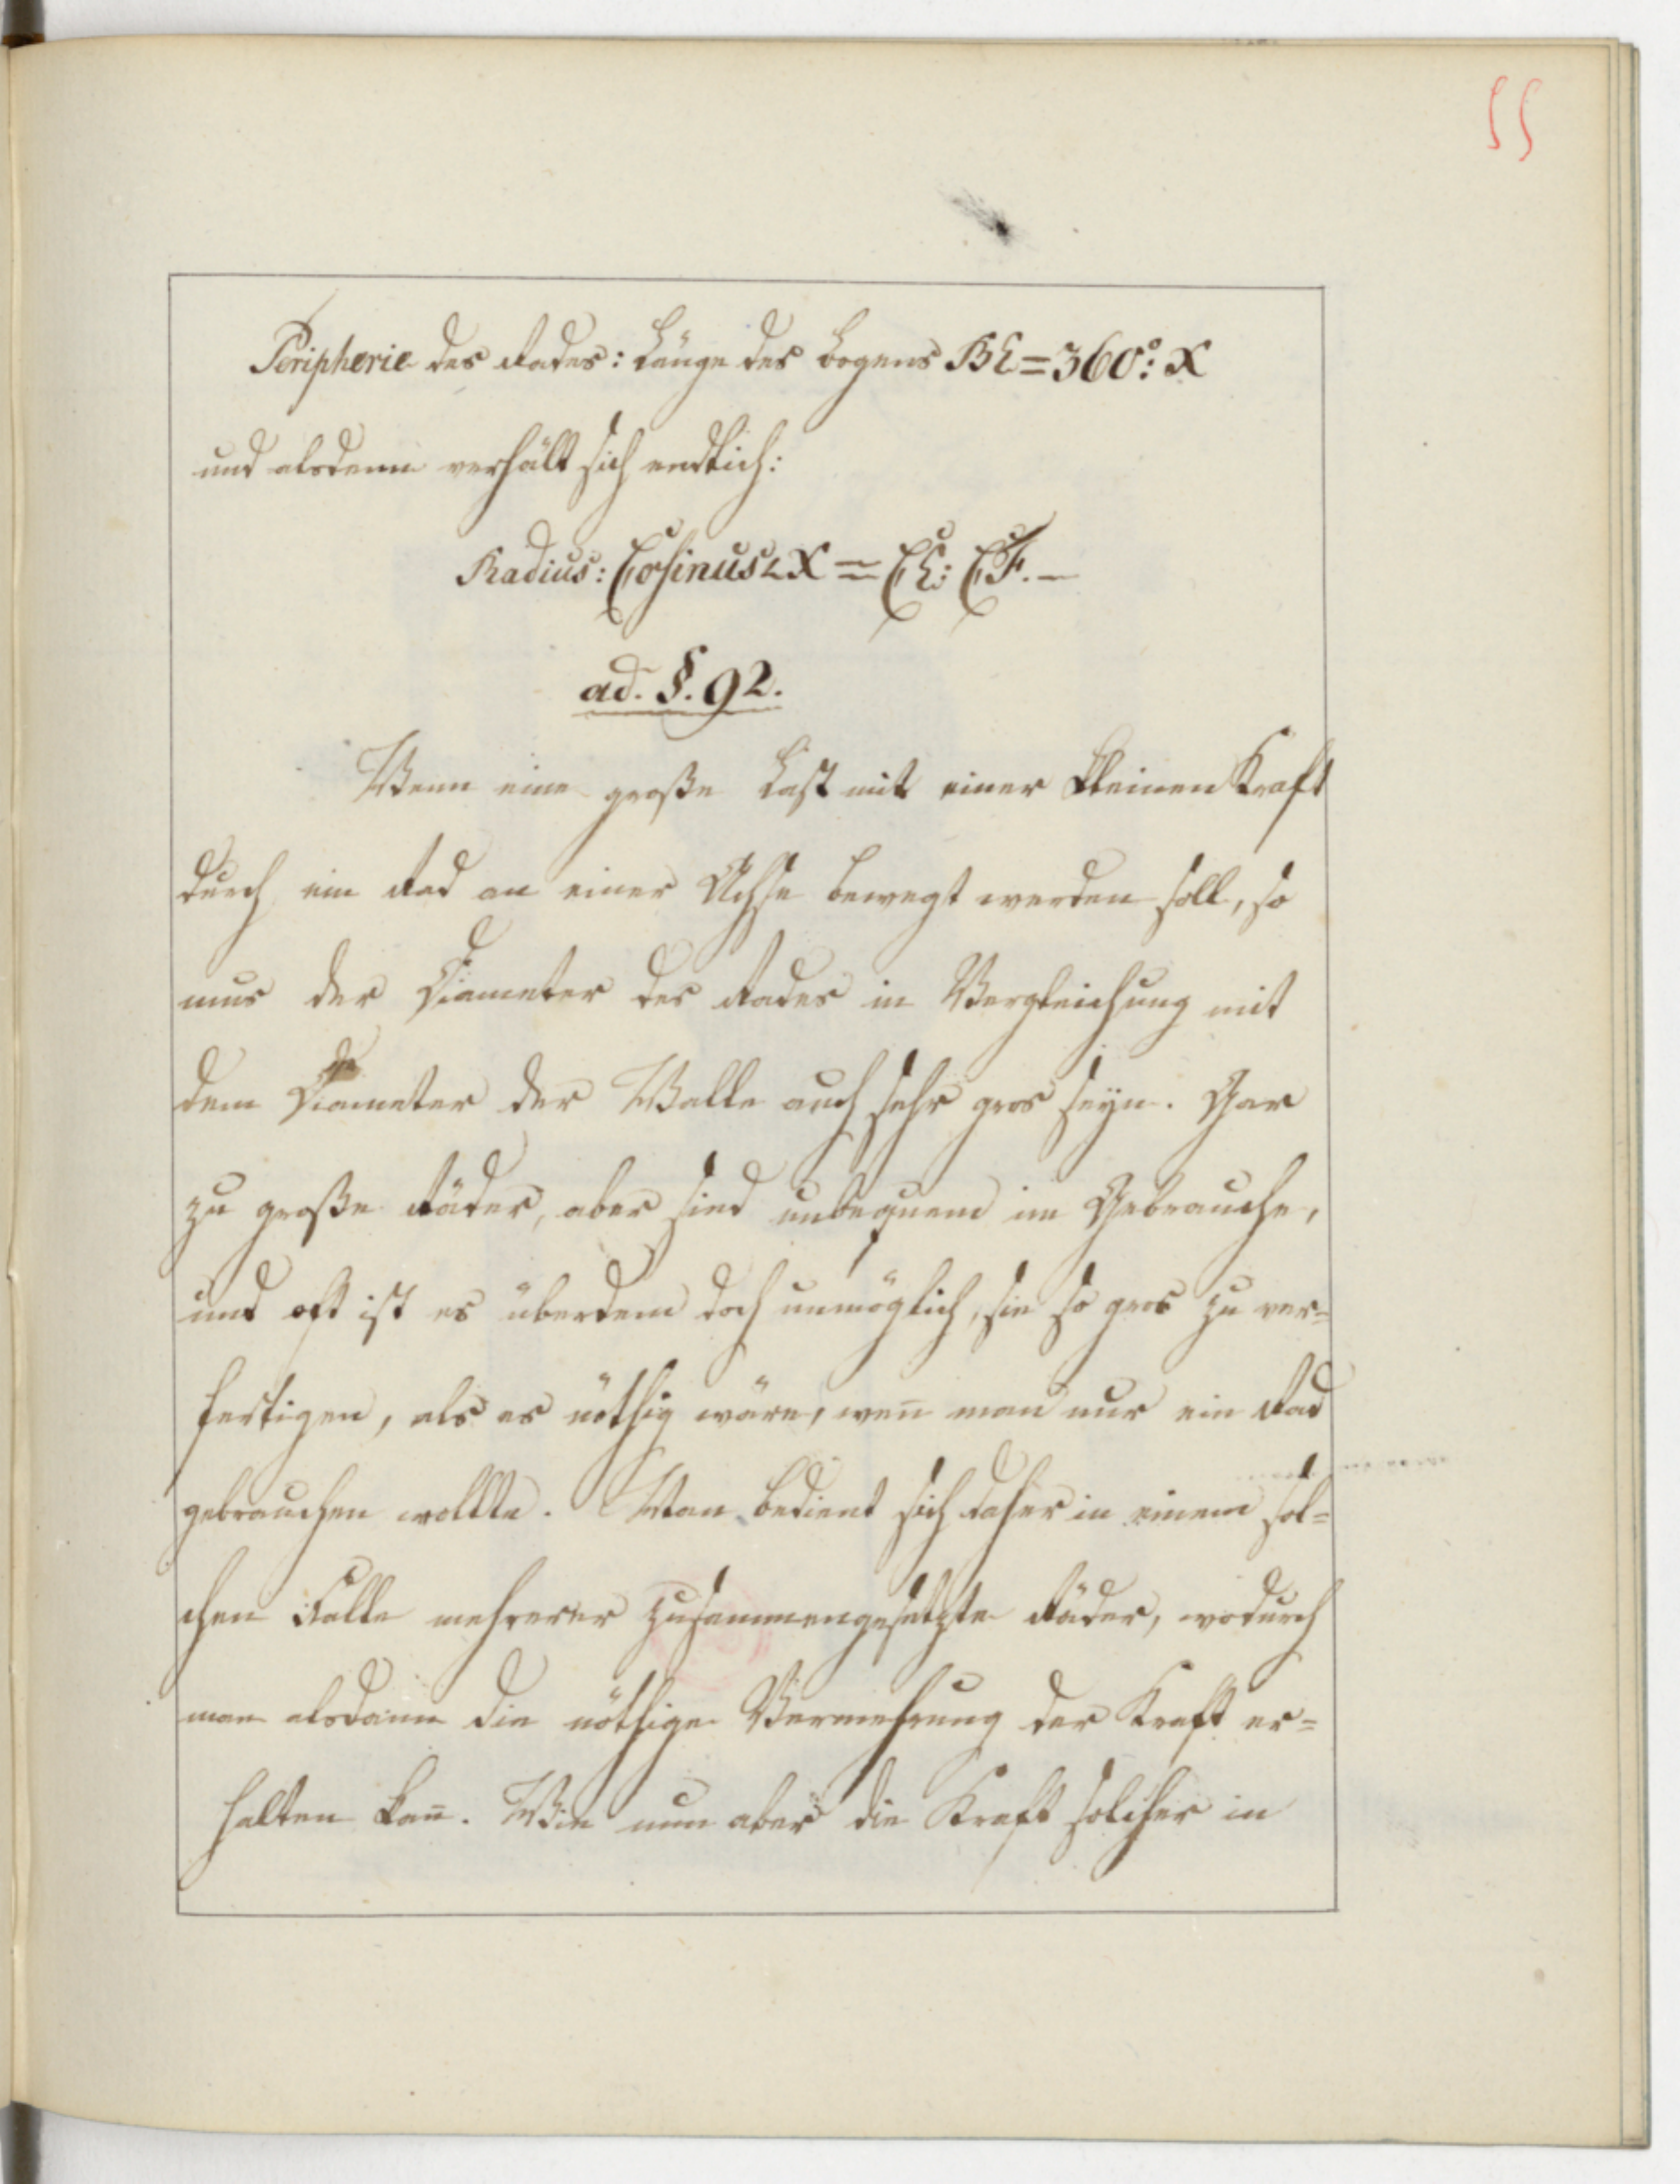 55
Peripherie des Rades: Länge des Bogens BE = 360°: X
und alsdenn verhält sich endlich:
Radius: Cosinus ∠ X = CE: CF. —
ad. §. 92.
Wenn eine große Last mit einer kleinen Kraft
durch ein Rad an einer Achse bewegt werden soll, so
mus der Diameter des Rades in Vergleichung mit
dem Diameter der Welle auch sehr gros seyn. Gar
zu große Räder, aber sind unbequem im Gebrauche,
und oft ist es überdem doch unmöglich, sie so gros zu ver=
fertigen, als es nöthig wäre, weñ man nur ein Rad
gebrauchen wollte. Man bedient sich daher in einem sol=
chen Falle mehrerer zusammengesetzte Räder, wodurch
man alsdann die nöthige Vermehrung der Kraft er=
halten kañ. Wie nun aber die Kraft solcher in